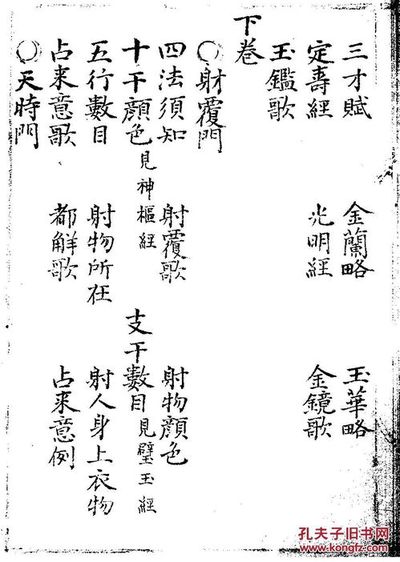 三才賦 金蘭略 玉華略
定壽經 光明經 金鏡歌
玉鑑歌
下卷
〇射覆門
四法須知 射覆歌 射物顔色
十干顔色見神樞經 支干數目見璧玉經
五行數目 射物所在 射人身上衣物
占來意歌 都解歌 占來意例
〇天時門
孔夫子旧书网
www.kongfz.com